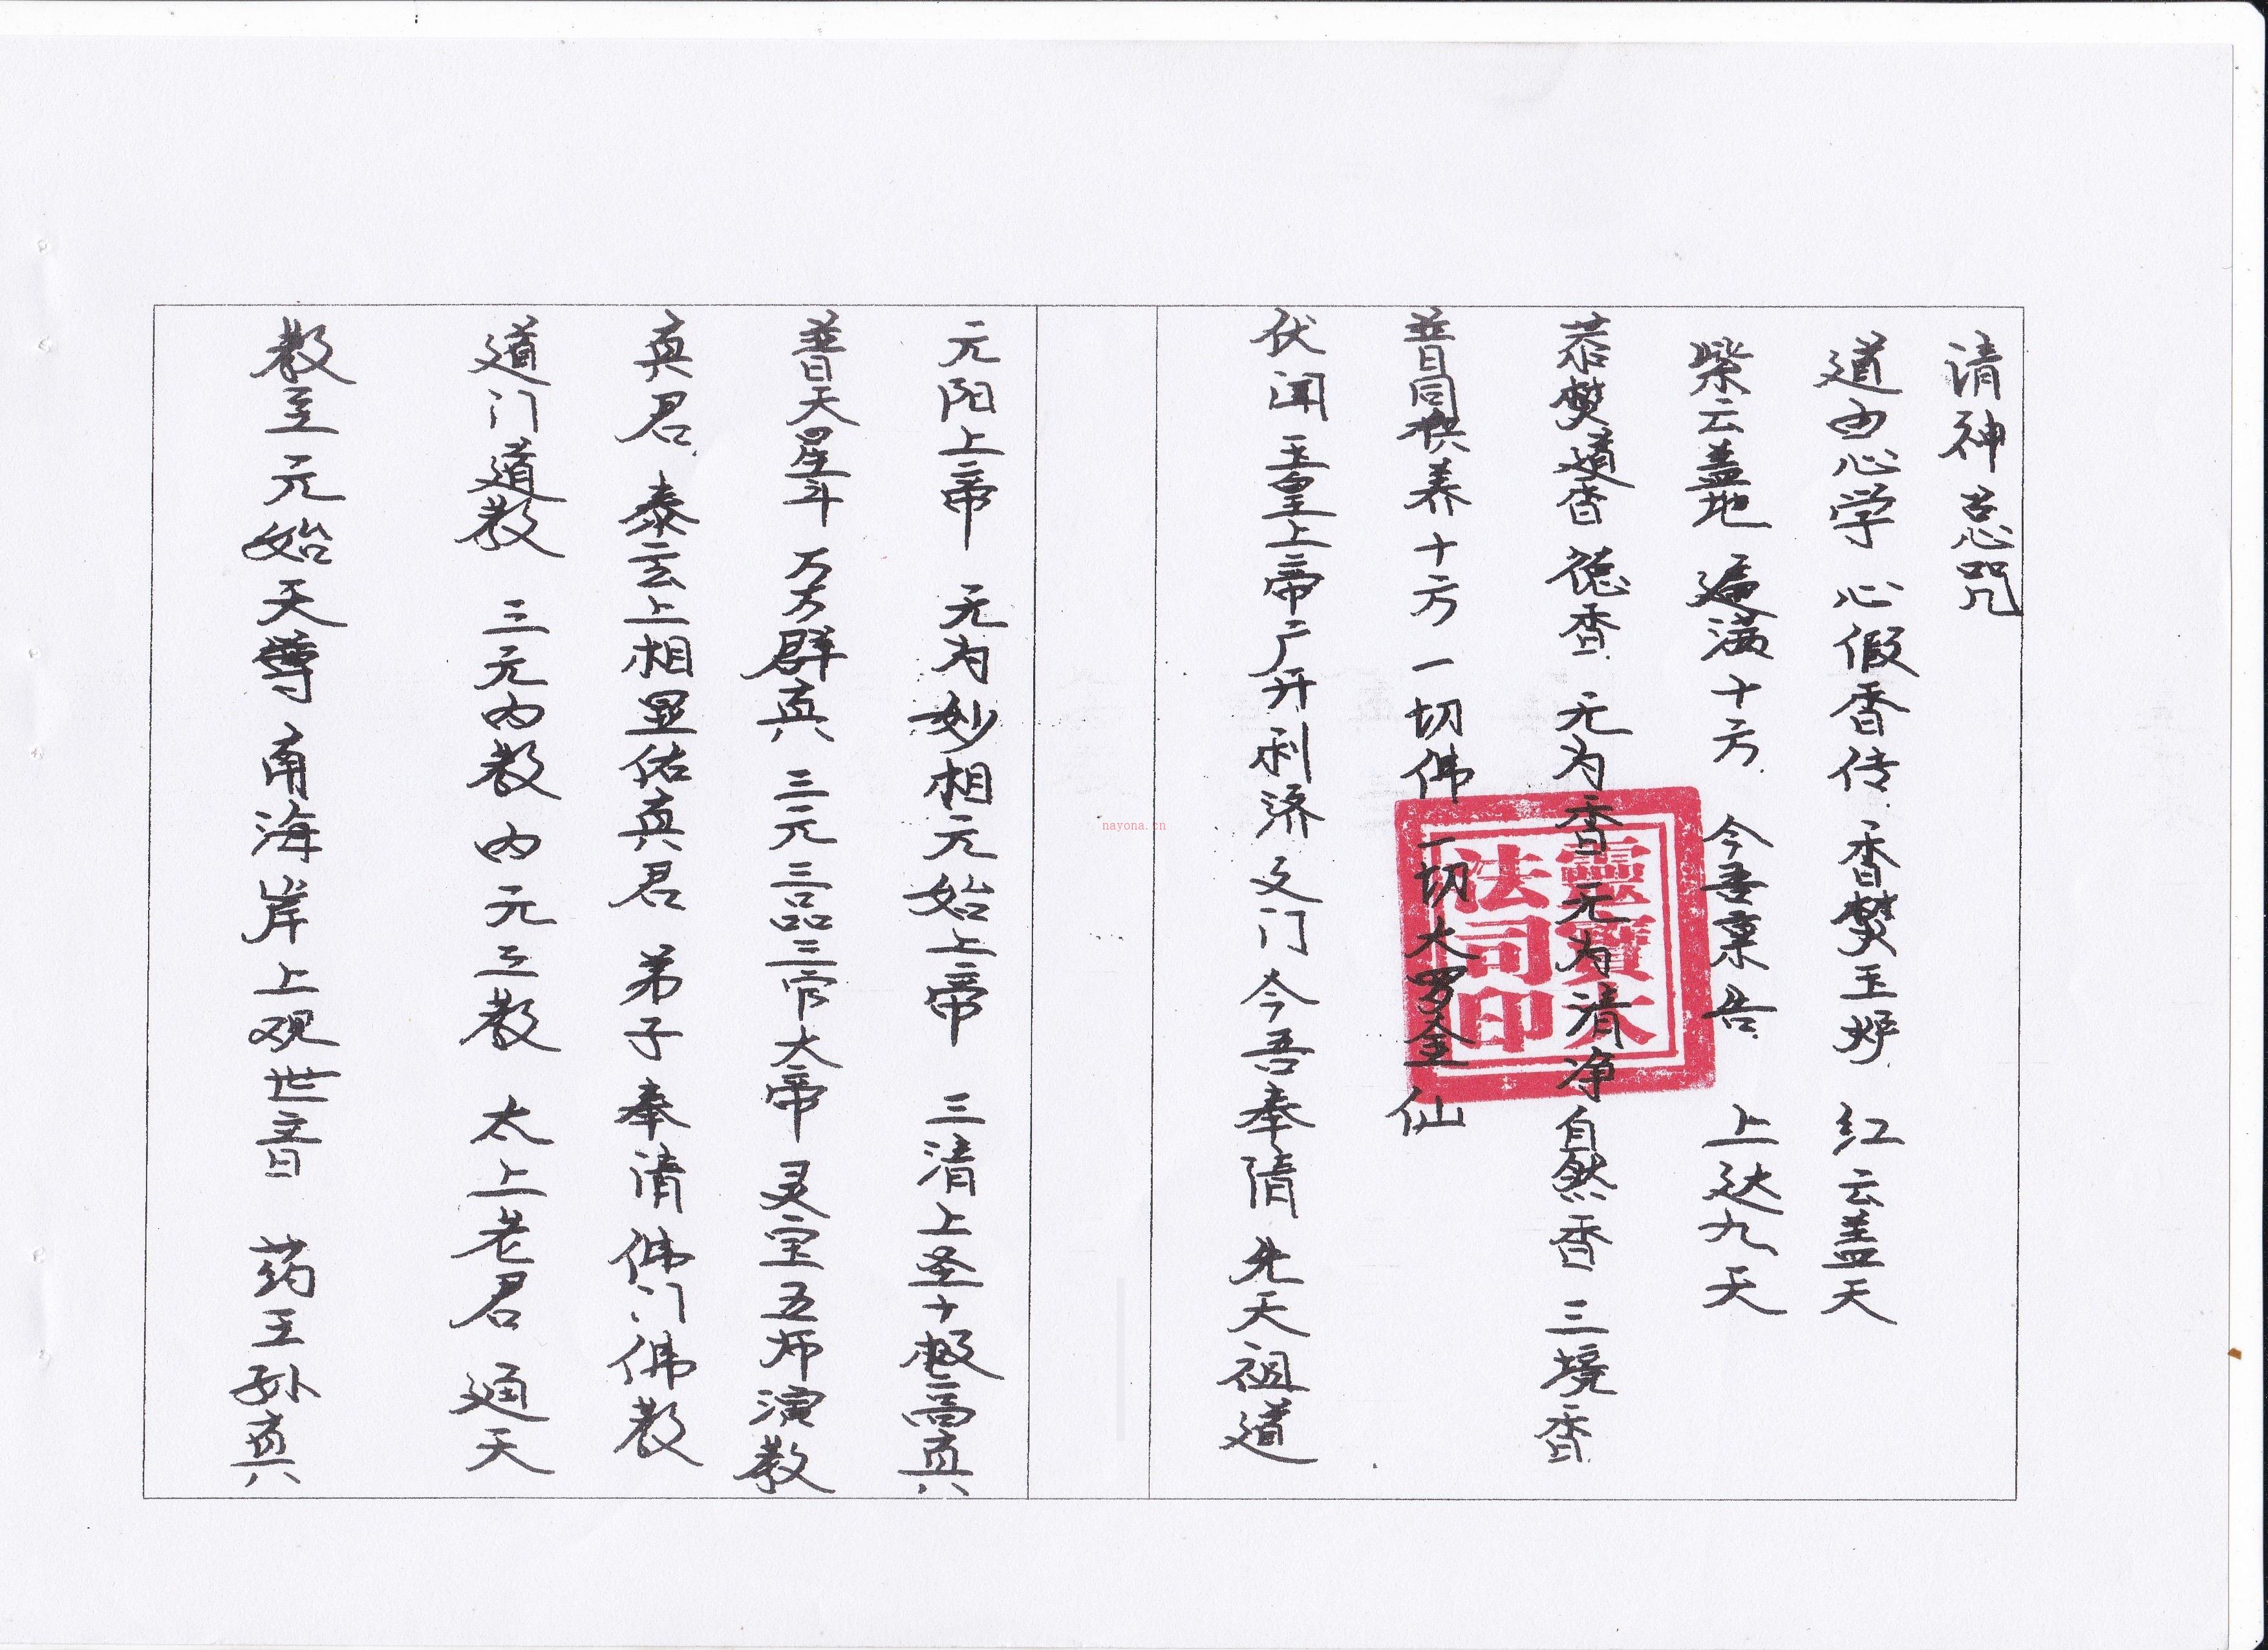 清神总咒
道由心学 心假香传 香焚玉炉 红云盖天
紫云盖地 遍满十方 今吾禀告 上达九天
恭焚道香 德香 元为香 元为清净自然香 三境香
普同供养十方一切佛一切大罗金仙
伏闻玉皇上帝广开利济之门今吾奉请先天祖道
元阳上帝 元为妙相元始上帝 三清上圣十极高真
普天星斗 万万群真 三元三品三官大帝 灵宝五师演教
真君 泰玄上相显佑真君 弟子奉请佛门佛教
道门道教 三元内教内元三教 太上老君 通天
教主 元始天尊 南海岸上观世音 药王孙真
靈寶大
法司印
nayona.cn